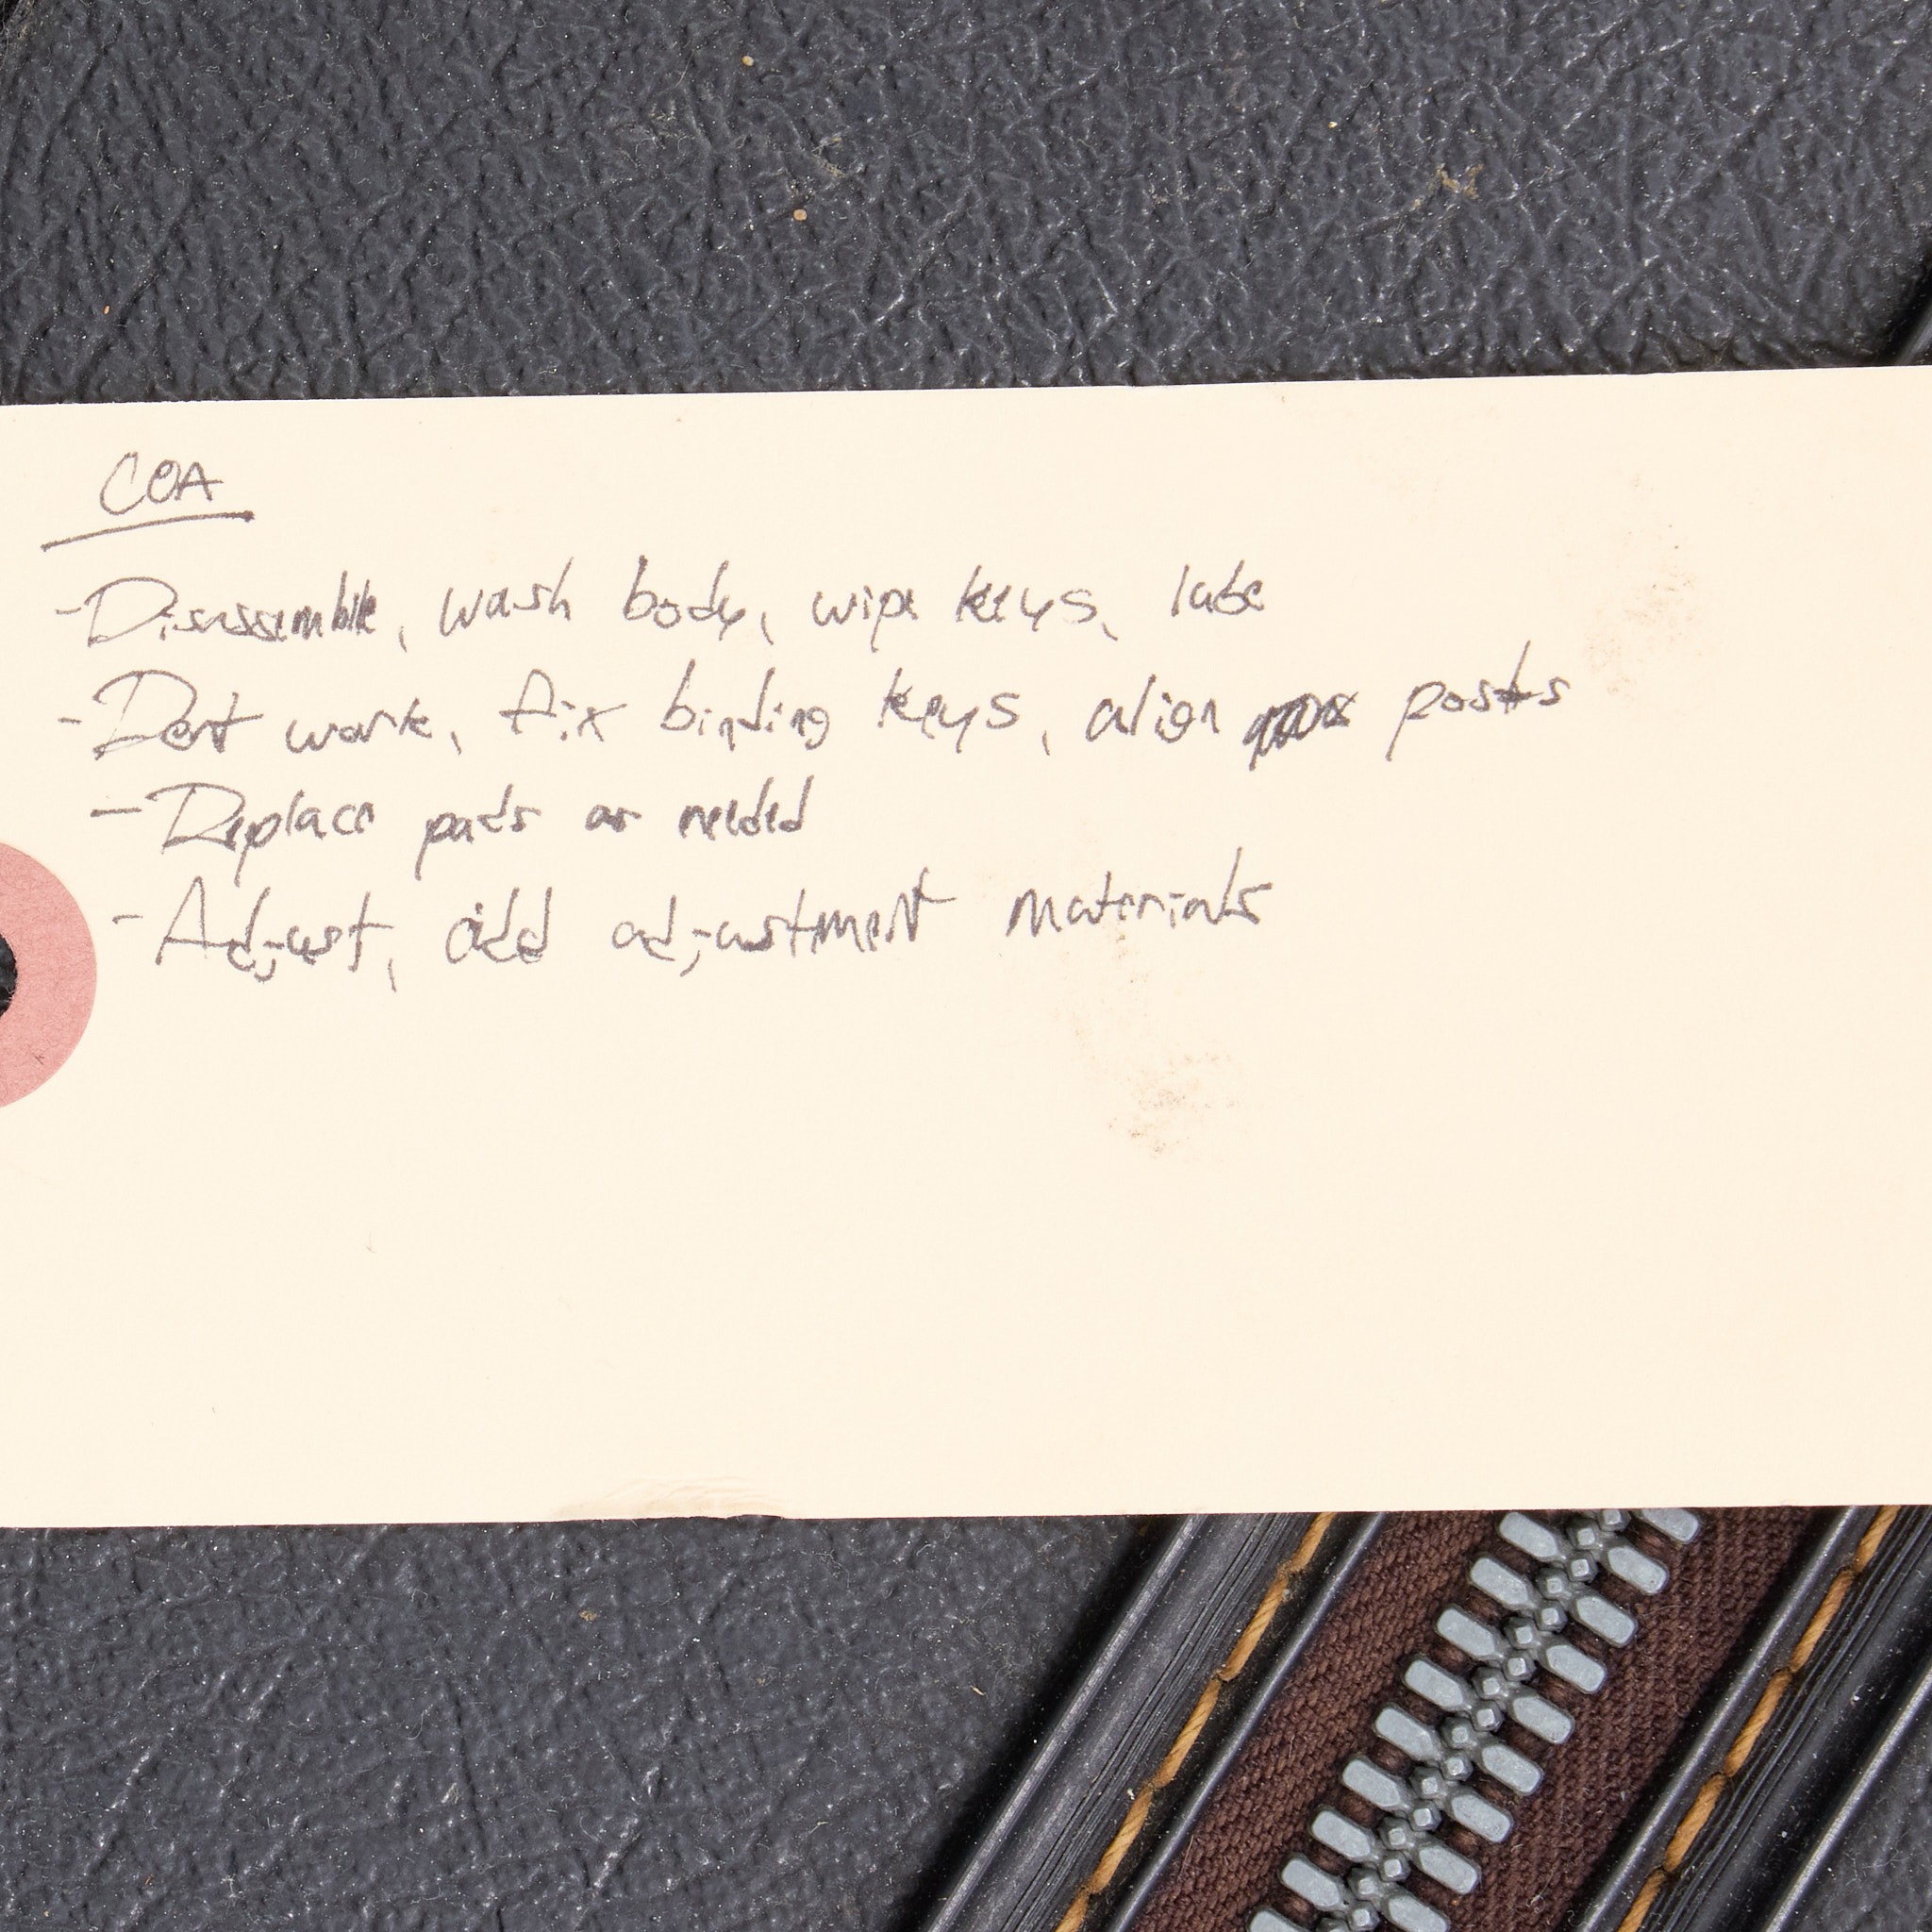 COA
-Disassemble, wash body, wipe keys, lube
-Dent work, fix binding keys, align posts
-Replace pads as needed
-Adjust, add adjustment materials